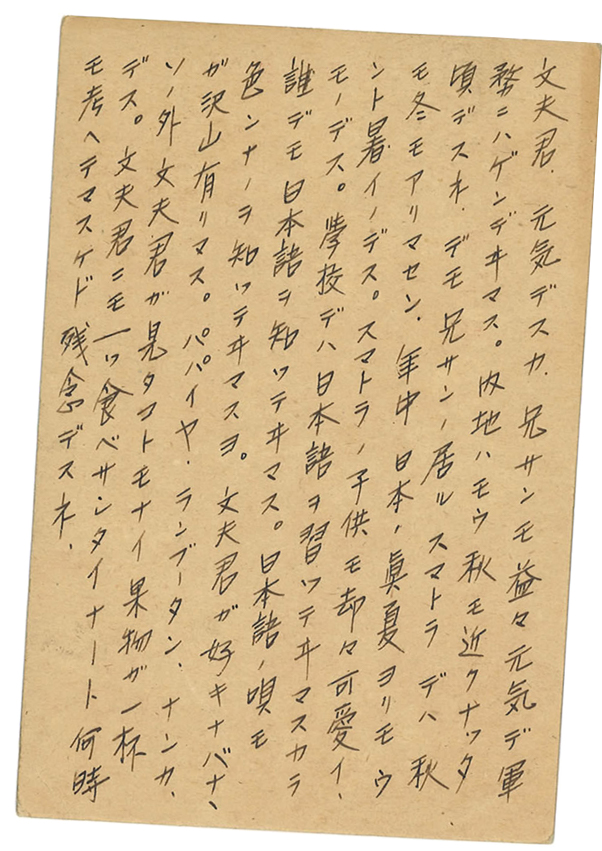 文夫君、元気デスカ、兄サンモ益々元気デ軍
務ニハゲンデヰマス。内地ハモウ秋モ近クナッタ
頃デスネ、デモ兄サンノ居ルスマトラデハ秋
モ冬モアリマセン、年中日本ノ眞夏ヨリモウ
ント暑イノデス。スマトラノ子供モ却々可愛イ、
モノデス。學校デハ日本語ヲ習ツテヰマスカラ
誰デモ日本語ヲ知ツテヰマス。日本語ノ唄モ
色ンナノヲ知ツテヰマスヨ。文夫君ガ好キナバナヽ
ガ沢山有リマス。パパイヤ、ランブータン、ナンカ、
ソノ外文夫君ガ見タコトモナイ果物ガ一杯
デス。文夫君ニモ一ツ食ベサシタイナート何時
モ考ヘテマスケド残念デスネ、